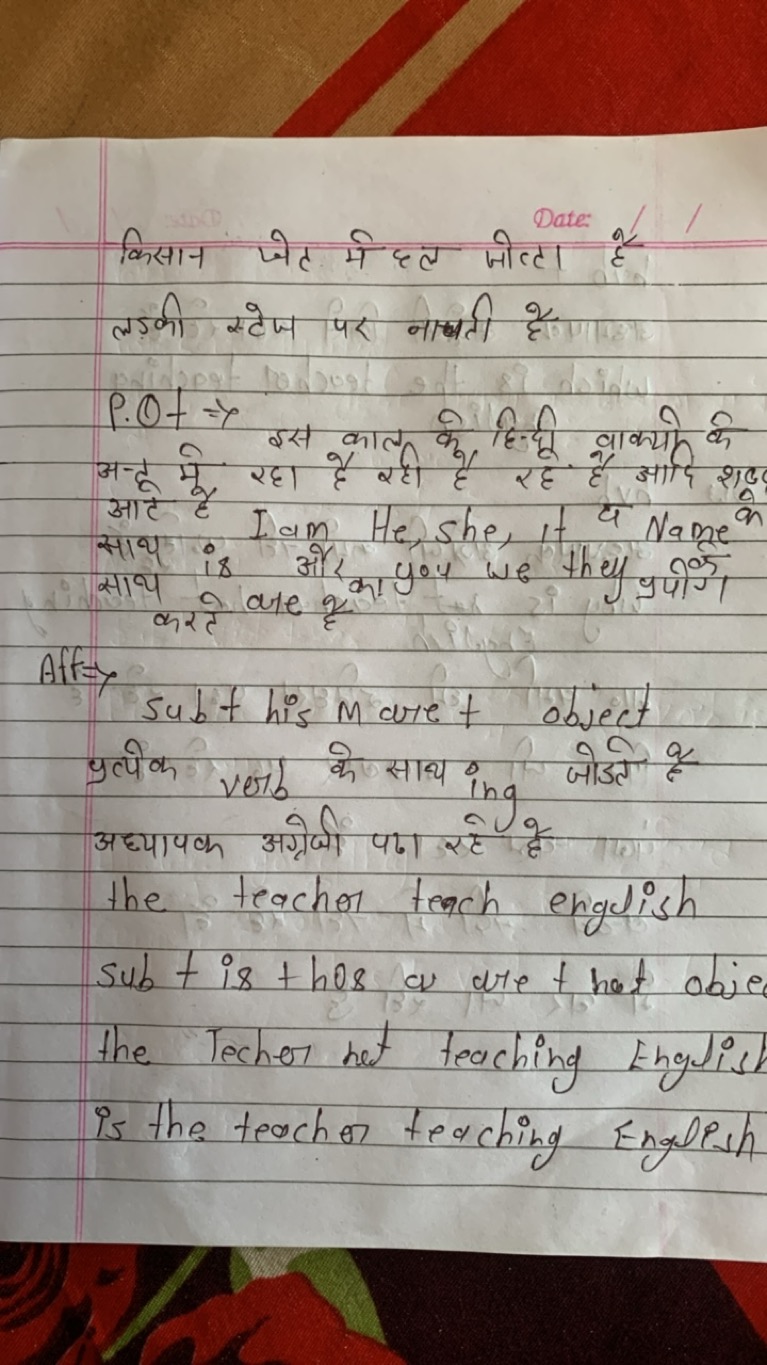 Date: / /
किसान खेट में हल जोत्टा है
लड़की स्टेज पर नाचती है
P.Ot =>
इस काल के हिन्दी वाक्यो के
अन्ट में रहा है रही है रहे हैं आदि शब्द
आटे है I am He, she, it व Name के
साथ is और you we they के
साथ are का प्रयोग
करते है
Aff=>
sub + his m are + object
प्रत्येक verb के साथ ing जोडते है
अध्यापक अग्रेजी पढा रहे है
the teacher teach english
sub + is + hos are + not obje
the Techer not teaching English
is the teacher teaching English